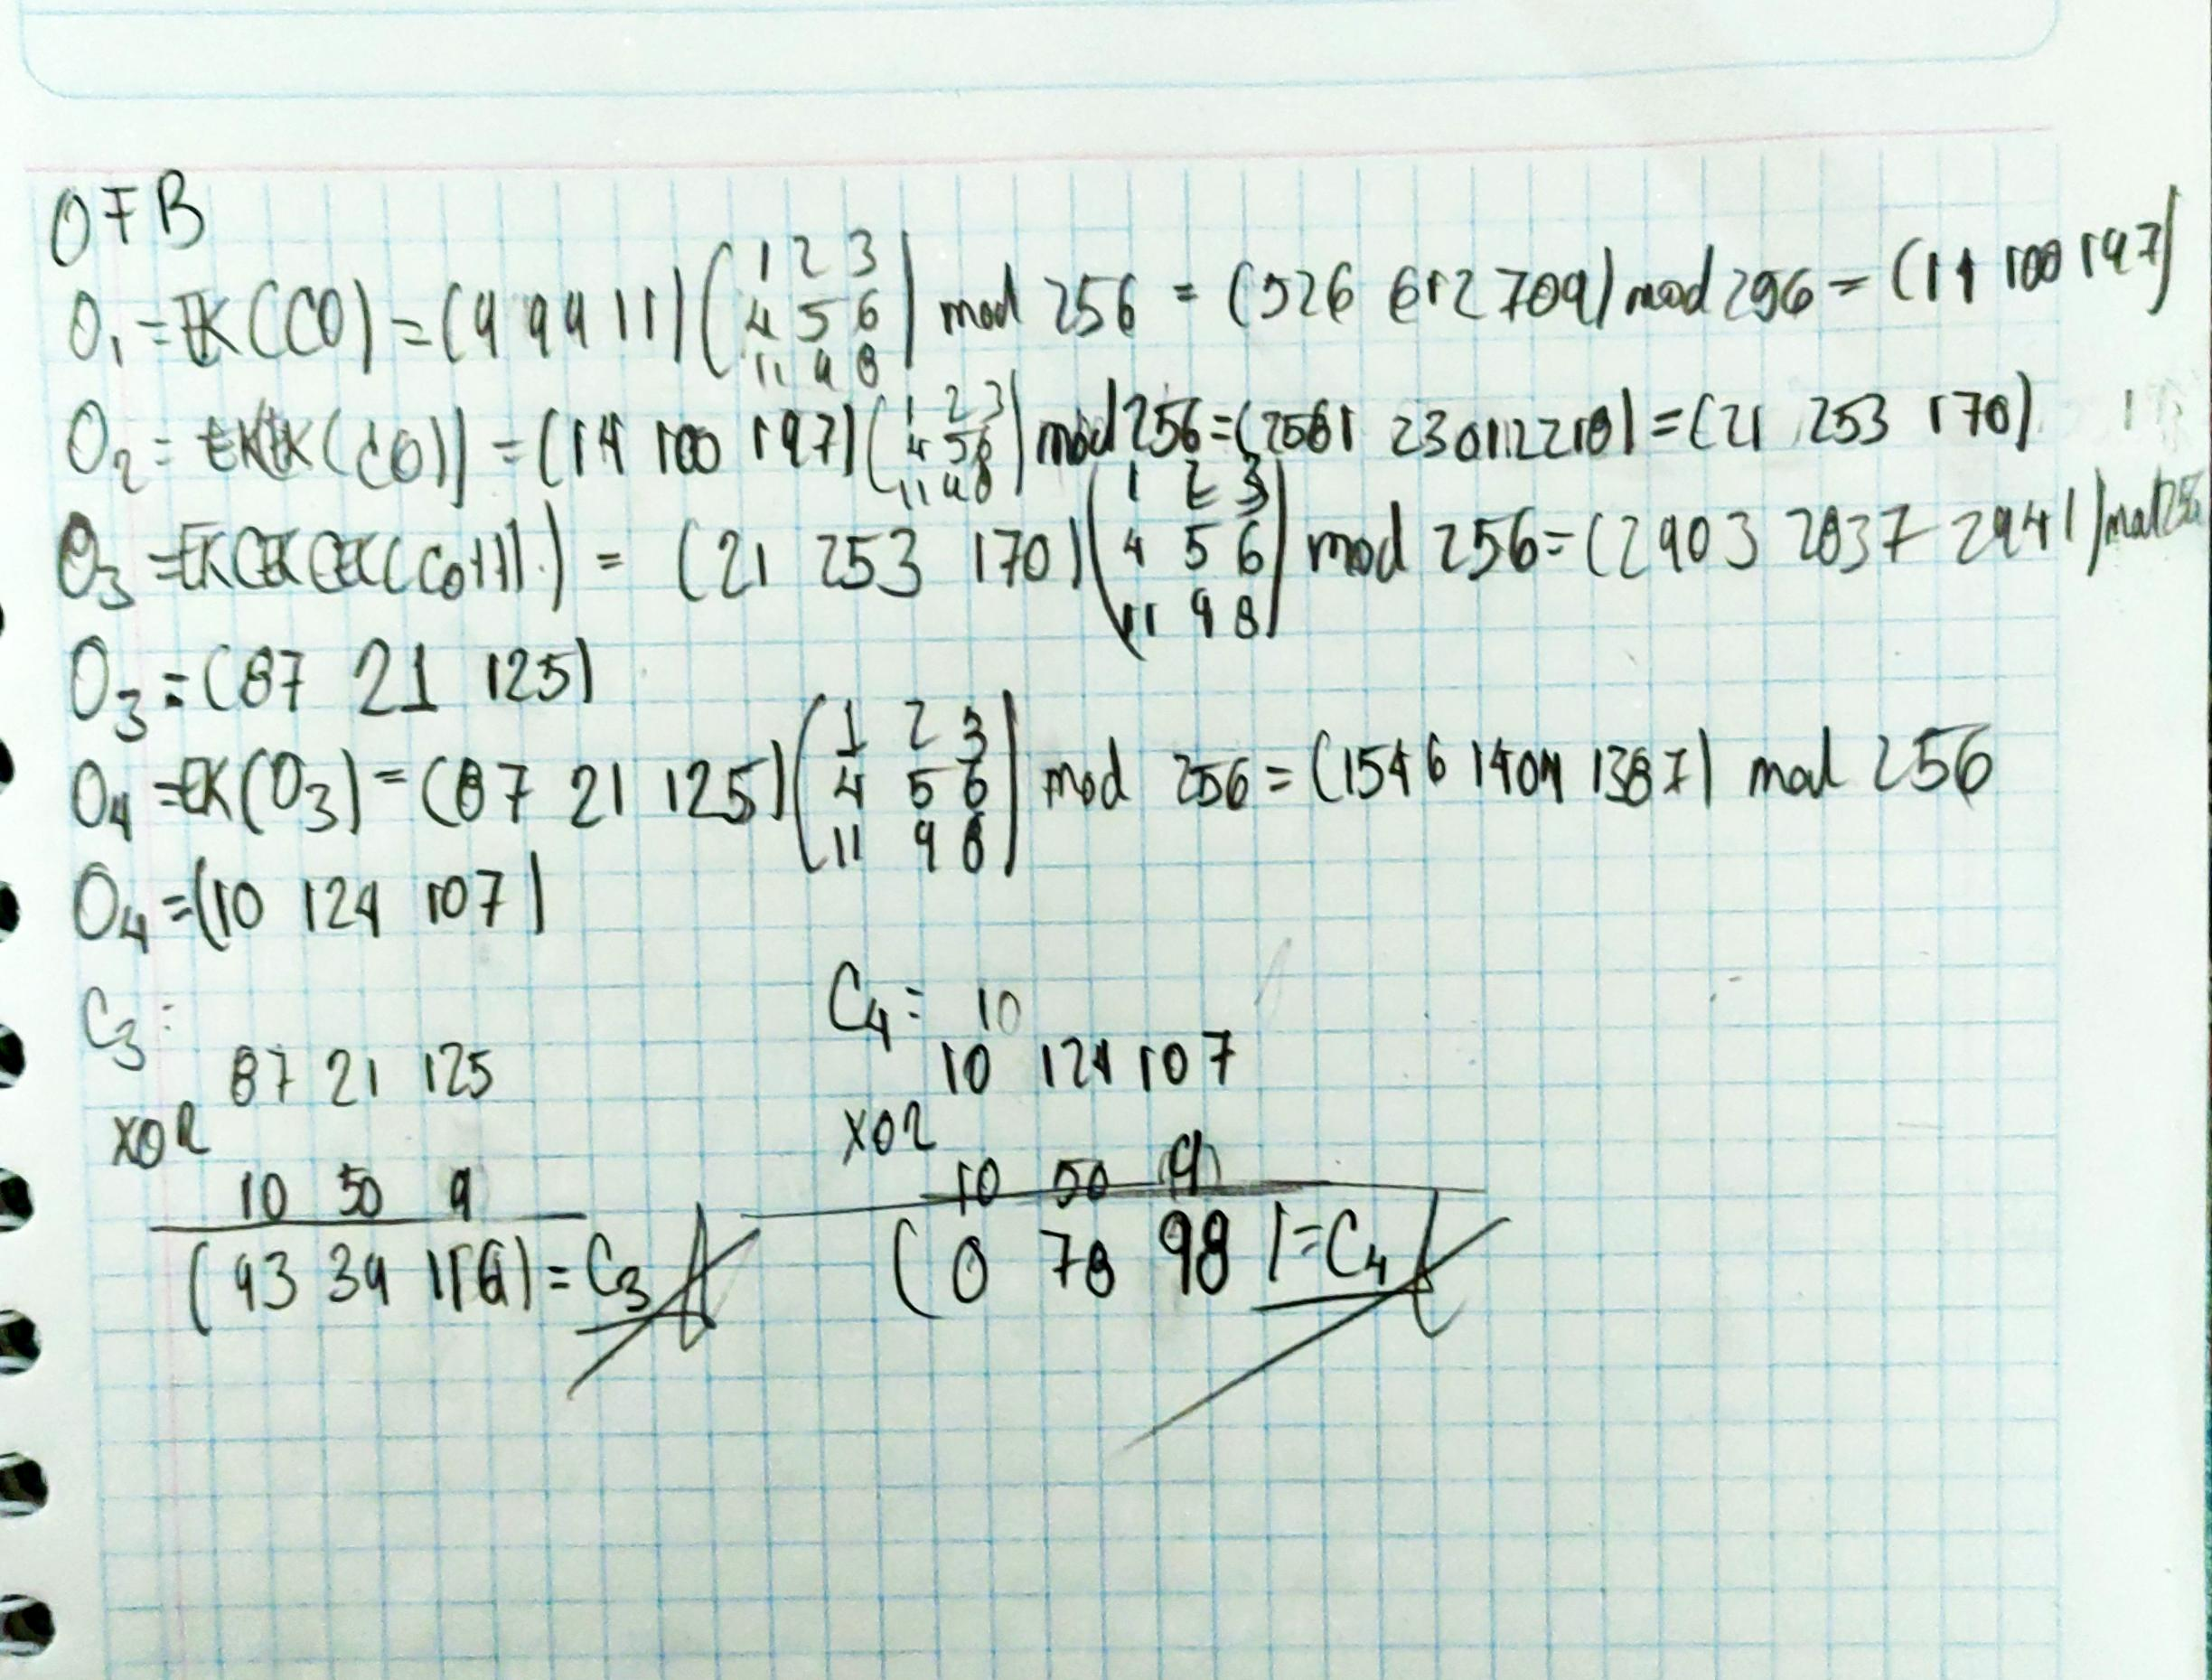 OFB
O₁ = EK(C0) = (9 99 11) (1 2 3 / 4 5 6 / 11 9 8) mod 256 = (526 612 709) mod 256 = (14 100 197)
O₂ = EK(EK(C0)) = (14 100 197) (1 2 3 / 4 5 6 / 11 9 8) mod 256 = (2581 2301 2218) = (21 253 170)
O₃ = EK(EK(EK(C0))) = (21 253 170) (1 2 3 / 4 5 6 / 11 9 8) mod 256 = (2903 2837 2941) mod 256
O₃ = (87 21 125)
O₄ = EK(O₃) = (87 21 125) (1 2 3 / 4 5 6 / 11 9 8) mod 256 = (1546 1404 1387) mod 256
O₄ = (10 124 107)
C₃:
87 21 125
XOR
10 50 9
(93 39 116) = C₃
C₄ = 10
10 124 107
XOR
10 50 9
(0 78 98) = C₄